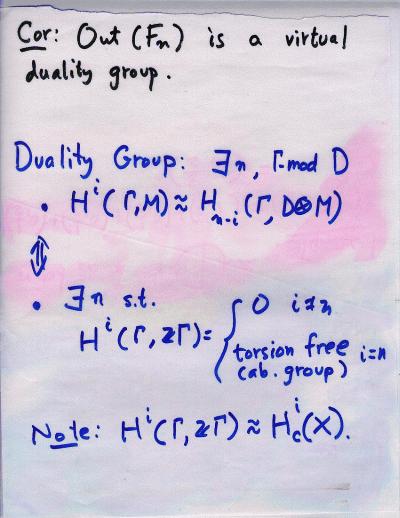 Cor: Out (Fn) is a virtual
duality group.
Duality Group: ∃n, Γ-mod D
• Hⁱ(Γ,M) ≈ H_{n-i}(Γ, D⊗M)
⇕
• ∃n s.t.
Hⁱ(Γ, ZΓ) = { 0 i≠n
torsion free i=n
(ab. group)
Note: Hⁱ(Γ, ZΓ) ≈ H_cⁱ(X).